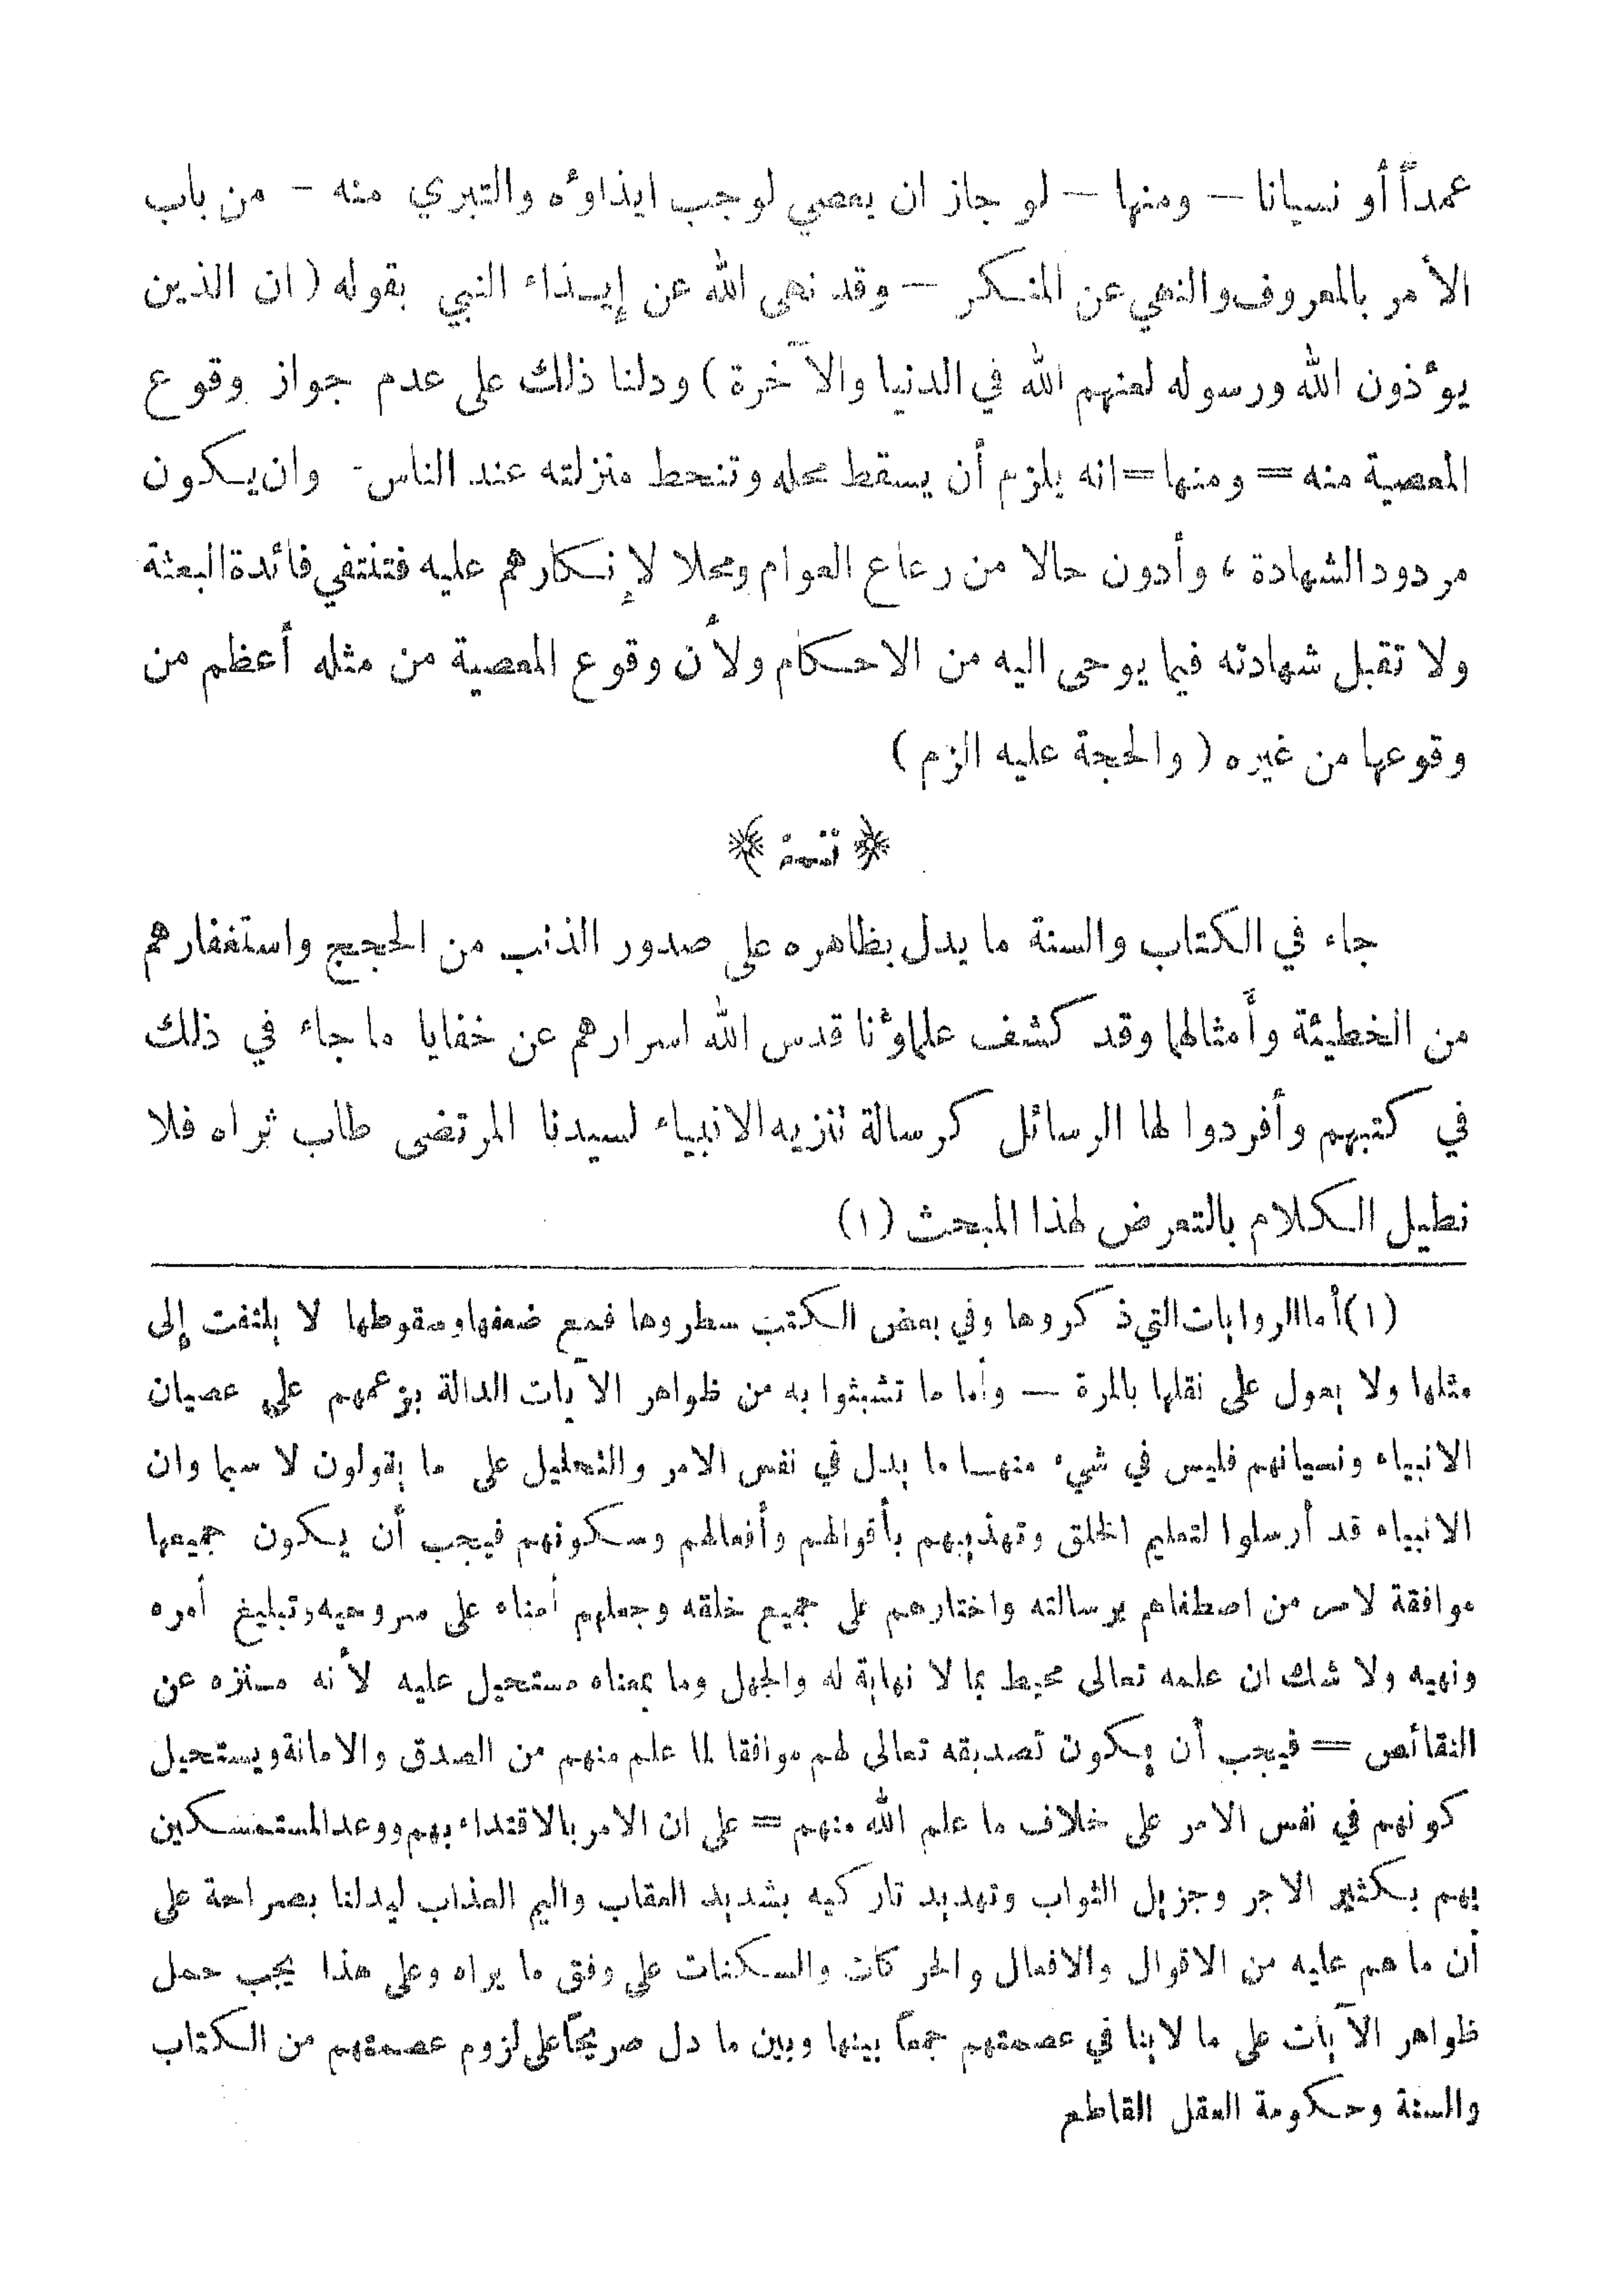 عمداً أو نسيانا — ومنها — لو جاز ان يعصي لوجب ايذاؤه والتبري منه — من باب
الأمر بالمعروف والنهي عن المنكر — وقد نهى الله عن إيذاء النبي بقوله ( ان الذين
يؤذون الله ورسوله لعنهم الله في الدنيا والآخرة ) ودلنا ذلك على عدم جواز وقوع
المعصية منه = ومنها = انه يلزم أن يسقط محله وتنحط منزلته عند الناس - وان يكون
مردود الشهادة ، وأدون حالا من رعاع العوام ومحلا لإنكارهم عليه فتنتفي فائدة البعثة
ولا تقبل شهادته فيما يوحى اليه من الاحكام ولأن وقوع المعصية من مثله أعظم من
وقوعها من غيره ( والحجة عليه الزم )
﴿ تتمة ﴾
جاء في الكتاب والسنة ما يدل بظاهره على صدور الذنب من الحجج واستغفارهم
من الخطيئة وأمثالها وقد كشف علماؤنا قدس الله اسرارهم عن خفايا ما جاء في ذلك
في كتبهم وأفردوا لها الرسائل كرسالة تنزيه الانبياء لسيدنا المرتضى طاب ثراه فلا
نطيل الكلام بالتعرض لهذا المبحث (١)
(١) أما الروايات التي ذكروها وفي بعض الكتب سطروها فمع ضعفها وسقوطها لا يلتفت إلى
مثلها ولا يعول على نقلها بالمرة — وأما ما تشبثوا به من ظواهر الآيات الدالة بزعمهم على عصيان
الانبياء ونسيانهم فليس في شيء منها ما يدل في نفس الامر والتحليل على ما يقولون لا سيما وان
الانبياء قد أرسلوا لتعليم الخلق وتهذيبهم بأقوالهم وأفعالهم وسكونهم فيجب أن يكون جميعها
موافقة لامر من اصطفاهم برسالته واختارهم على جميع خلقه وجعلهم أمناء على سر وحيه وتبليغ أمره
ونهيه ولا شك ان علمه تعالى محيط بما لا نهاية له والجهل وما بمعناه مستحيل عليه لأنه منزه عن
النقائص = فيجب أن يكون تصديقه تعالى لهم موافقا لما علم منهم من الصدق والامانة ويستحيل
كونهم في نفس الامر على خلاف ما علم الله منهم = على ان الامر بالاقتداء بهم ووعد المستمسكين
بهم بكثير الاجر وجزيل الثواب وتهديد تاركيه بشديد العقاب واليم العذاب ليدلنا بصراحة على
أن ما هم عليه من الاقوال والافعال والحركات والسكنات على وفق ما يراه وعلى هذا يجب حمل
ظواهر الآيات على ما لا ينافي عصمتهم جمعاً بينها وبين ما دل صريحاً على لزوم عصمتهم من الكتاب
والسنة وحكومة العقل القاطع